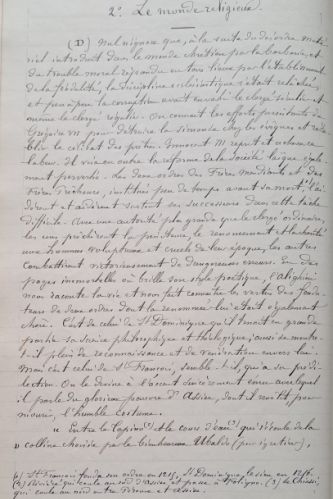 2° Le monde religieux.
(D) Nul n'ignore que, à la suite du désordre maté-
riel introduit dans le monde chrétien par la barbarie, et
du trouble moral répandu en tous lieux par l'établissement
de la féodalité, la discipline ecclésiastique s'était relâchée,
et peu à peu la corruption avait envahi le clergé séculier et
même le clergé régulier. On connaît les efforts persistants de
Grégoire VII pour détruire la simonie chez les évêques et réta-
blir le célibat des prêtres. Innocent III reprit et acheva
labeur. Il visa en outre la réforme de la société laïque égale-
ment pervertie. Les deux ordres des Frères Mendiants et des
Frères Prêcheurs, institués peu de temps avant sa mort, l'ai-
dèrent et aidèrent surtout ses successeurs dans cette tâche
difficile. Avec une autorité plus grande que le clergé ordinaire,
les uns prêchèrent la pénitence, le renoncement et la charité
aux hommes voluptueux et cruels de leur époque, les autres
combattirent victorieusement de dangereuses erreurs. En des
pages immortelles où brille son style poétique, l'Alighieri
nous raconte la vie et nous fait connaître les vertus des fonda-
teurs de deux ordres dont la renommée lui était également
chère. C'est de celui de St Dominique qu'il tenait en grande
partie sa science philosophique et théologique; aussi se montre-
t-il plein de reconnaissance et de vénération envers lui
mais c'est celui de St François, semble-t-il, qui a sa prédi-
lection. On le devine à l'accent avec lequel
il parle du glorieux pauvre d'Assise, dont il revêtit, pour
mourir, l'humble costume.
" Entre le Tupino et le cours d'eau qui découle de la
" colline choisie par le bienheureux Ubaldo (pour s'y retirer),
St François fonda son ordre en 1215, St Dominique, le sien en
Rivière qui coule au sud d'Assise et passe à Foligno. Le Chiassi,
qui coule au nord entre Pérouse et Assise